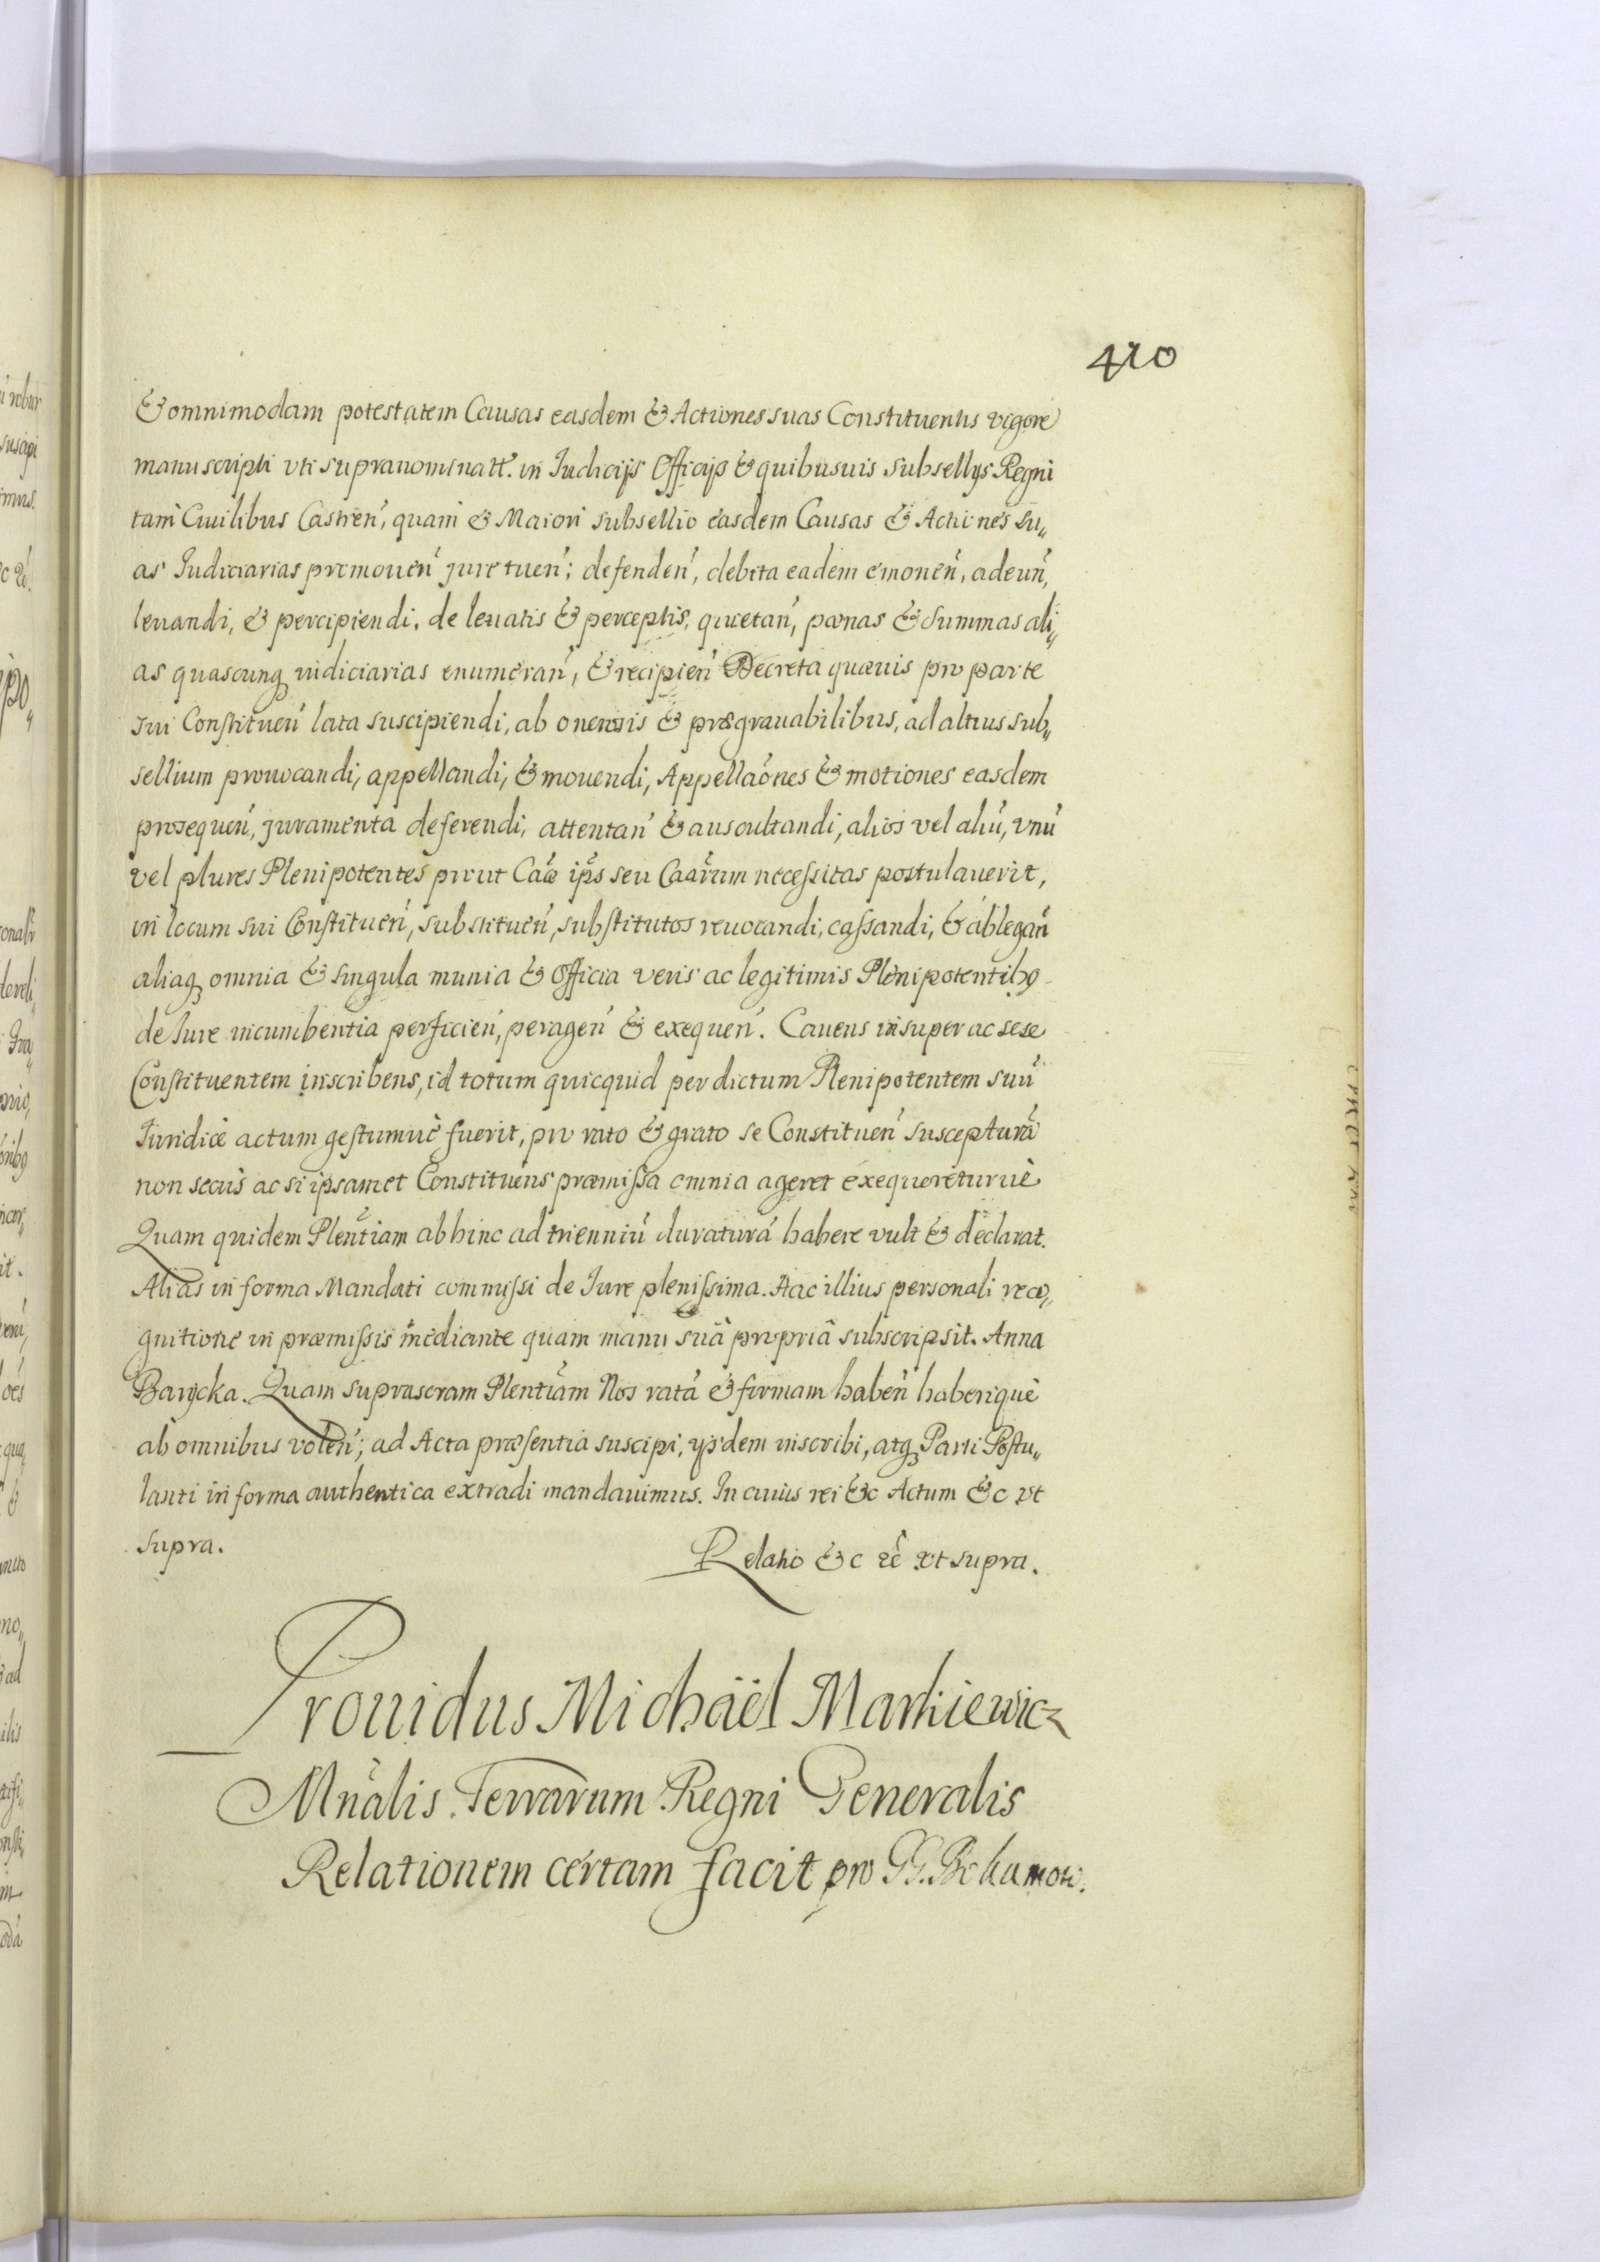 410
& omnimodam potestatem Causas easdem & Actiones suas Constituentis vigore
manuscripti vti supranominatt. in Iudicijs Officijs & quibusuis subsellijs Regni
tam Ciuilibus Castren, quam & Maiori subsellio easdem Causas & Actiones su„
as Iudiciarias promouen juretuen; defenden, debita eadem emonen, adeun,
leuandi, & percipiendi, de leuatis & perceptis, quietan, pœnas & summas ali„
as quascunq iudiciarias enumeran, & recipien Decreta quæuis pro parte
sui Constituen lata suscipiendi, ab onerosis & prægrauabilibus, ad altius sub„
sellium prouocandi, appellandi, & mouendi, Appellaones & motiones easdem
prosequen, juramenta deferendi, attentan & auscultandi, alios vel aliu, vnu
vel plures Plenipotentes prout Caæ ips seu Caarum necessitas postulauerit,
in locum sui Constituen, substituen, substitutos reuocandi, cassandi, & ablegan
aliaq omnia & singula munia & Officia veris ac legitimis Plenipotentibg
de Iure incumbentia perficien, peragen & exequen. Cauens insuper ac sese
Constituentem inscribens, id totum quicquid per dictum Plenipotentem suu
Iuridice actum gestumuè fuerit, pro rato & grato se Constituen suscepturã
non secus ac si ipsamet Constituens præmissa omnia ageret exequereturuè
Quam quidem Plentiam abhinc ad trienniu duraturã habere vult & declarat.
Alias in forma Mandati commissi de Iure plenissima. Hac illius personali reco„
gnitione in præmissis mediante quam manu suâ propriâ subscripsit. Anna
Barÿcka. Quam suprascram Plentiam Nos ratã & firmam haben haberiquè
ab omnibus volen; ad Acta præsentia suscipi, ijsdem inscribi, atq Parti Postu„
lanti in forma authentica extradi mandauimus. In cuius rei &c Actum &c vt
supra.
Relatio &c &c vt supra.
Prouidus Michäel Markiewicz
Mnalis Terrarum Regni Generalis
Relationem certam facit pro GG.